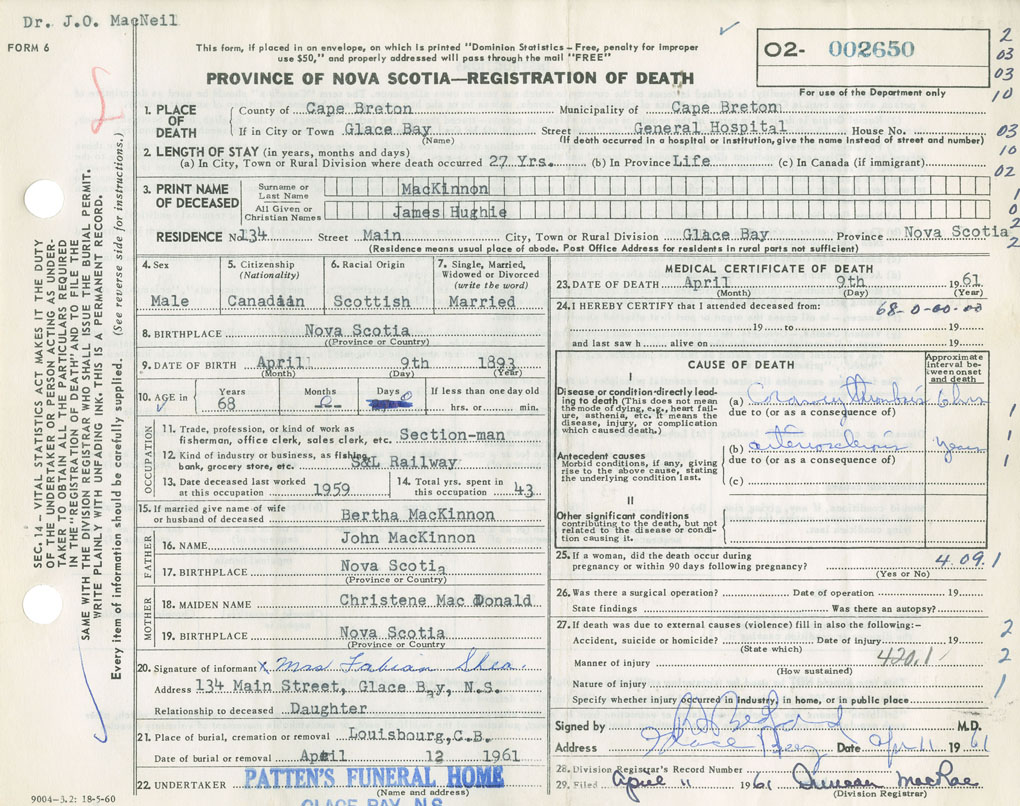 Dr. J.O. MacNeil
FORM 6
This form, if placed in an envelope, on which is printed "Dominion Statistics – Free, penalty for improper
use $50," and properly addressed will pass through the mail "FREE"
O2- 002650
For use of the Department only
PROVINCE OF NOVA SCOTIA—REGISTRATION OF DEATH
1. PLACE OF DEATH County of Cape Breton Municipality of Cape Breton
If in City or Town Glace Bay Street General Hospital House No.
(Name) (If death occurred in a hospital or institution, give the name instead of street and number)
2. LENGTH OF STAY (in years, months and days)
(a) In City, Town or Rural Division where death occurred 27 Yrs. (b) In Province Life (c) In Canada (if immigrant)
3. PRINT NAME OF DECEASED Surname or Last Name MacKinnon
All Given or Christian Names James Hughie
RESIDENCE No 134 Street Main City, Town or Rural Division Glace Bay Province Nova Scotia
(Residence means usual place of abode. Post Office Address for residents in rural parts not sufficient)
4. Sex Male
5. Citizenship (Nationality) Canadian
6. Racial Origin Scottish
7. Single, Married, Widowed or Divorced (write the word) Married
8. BIRTHPLACE Nova Scotia
(Province or Country)
9. DATE OF BIRTH April 9th 1893
(Month) (Day) (Year)
10. AGE in Years 68 Months 0 Days 0 If less than one day old hrs. or min.
OCCUPATION
11. Trade, profession, or kind of work as
fisherman, office clerk, sales clerk, etc. Section-man
12. Kind of industry or business, as fishing,
bank, grocery store, etc. S&L Railway
13. Date deceased last worked at this occupation 1959
14. Total yrs. spent in this occupation 43
15. If married give name of wife
or husband of deceased Bertha MacKinnon
FATHER
16. NAME John MacKinnon
17. BIRTHPLACE Nova Scotia
(Province or Country)
MOTHER
18. MAIDEN NAME Christene Mac Donald
19. BIRTHPLACE Nova Scotia
(Province or Country
20. Signature of informant x Mrs Fabian Shea.
Address 134 Main Street, Glace Bay, N.S.
Relationship to deceased Daughter
21. Place of burial, cremation or removal Louisbourg, C.B.
Date of burial or removal April 12 1961
22. UNDERTAKER PATTEN'S FUNERAL HOME
(Name and address)
GLACE BAY, N.S.
9004–3.2: 18-5-60
MEDICAL CERTIFICATE OF DEATH
23. DATE OF DEATH April 9th 1961
(Month) (Day) (Year)
24. I HEREBY CERTIFY that I attended deceased from: 68-0-00-00
19 to 19
and last saw h alive on 19
CAUSE OF DEATH
Approximate interval between onset and death
I
Disease or condition directly leading to death (This does not mean the mode of dying, e.g., heart failure, asthenia, etc. It means the disease, injury, or complication which caused death.)
(a) Coronary thrombosis 6 hrs
due to (or as a consequence of)
Antecedent causes
Morbid conditions, if any, giving rise to the above cause, stating the underlying condition last.
(b) arteriosclerosis years
due to (or as a consequence of)
(c)
II
Other significant conditions
contributing to the death, but not related to the disease or condition causing it.
25. If a woman, did the death occur during
pregnancy or within 90 days following pregnancy? 4.09.1
(Yes or No)
26. Was there a surgical operation? Date of operation 19
State findings Was there an autopsy?
27. If death was due to external causes (violence) fill in also the following:–
Accident, suicide or homicide? Date of injury 19
(State which)
Manner of injury 420.1
(How sustained)
Nature of injury
Specify whether injury occurred in industry, in home, or in public place
Signed by M.D.
Address Glace Bay Date Apr 11 1961
28. Division Registrar's Record Number
29. Filed April 11 1961 Duncan MacRae
(Division Registrar)
2
03
03
10
03
10
02
1
0
2
2
1
1
1
1
2
2
1
SEC. 14 – VITAL STATISTICS ACT MAKES IT THE DUTY
OF THE UNDERTAKER OR PERSON ACTING AS UNDER-
TAKER TO OBTAIN ALL THE PARTICULARS REQUIRED
IN THE "REGISTRATION OF DEATH" AND TO FILE THE
SAME WITH THE DIVISION REGISTRAR WHO SHALL ISSUE THE BURIAL PERMIT.
WRITE PLAINLY WITH UNFADING INK. THIS IS A PERMANENT RECORD.
Every item of information should be carefully supplied. (See reverse side for instructions.)